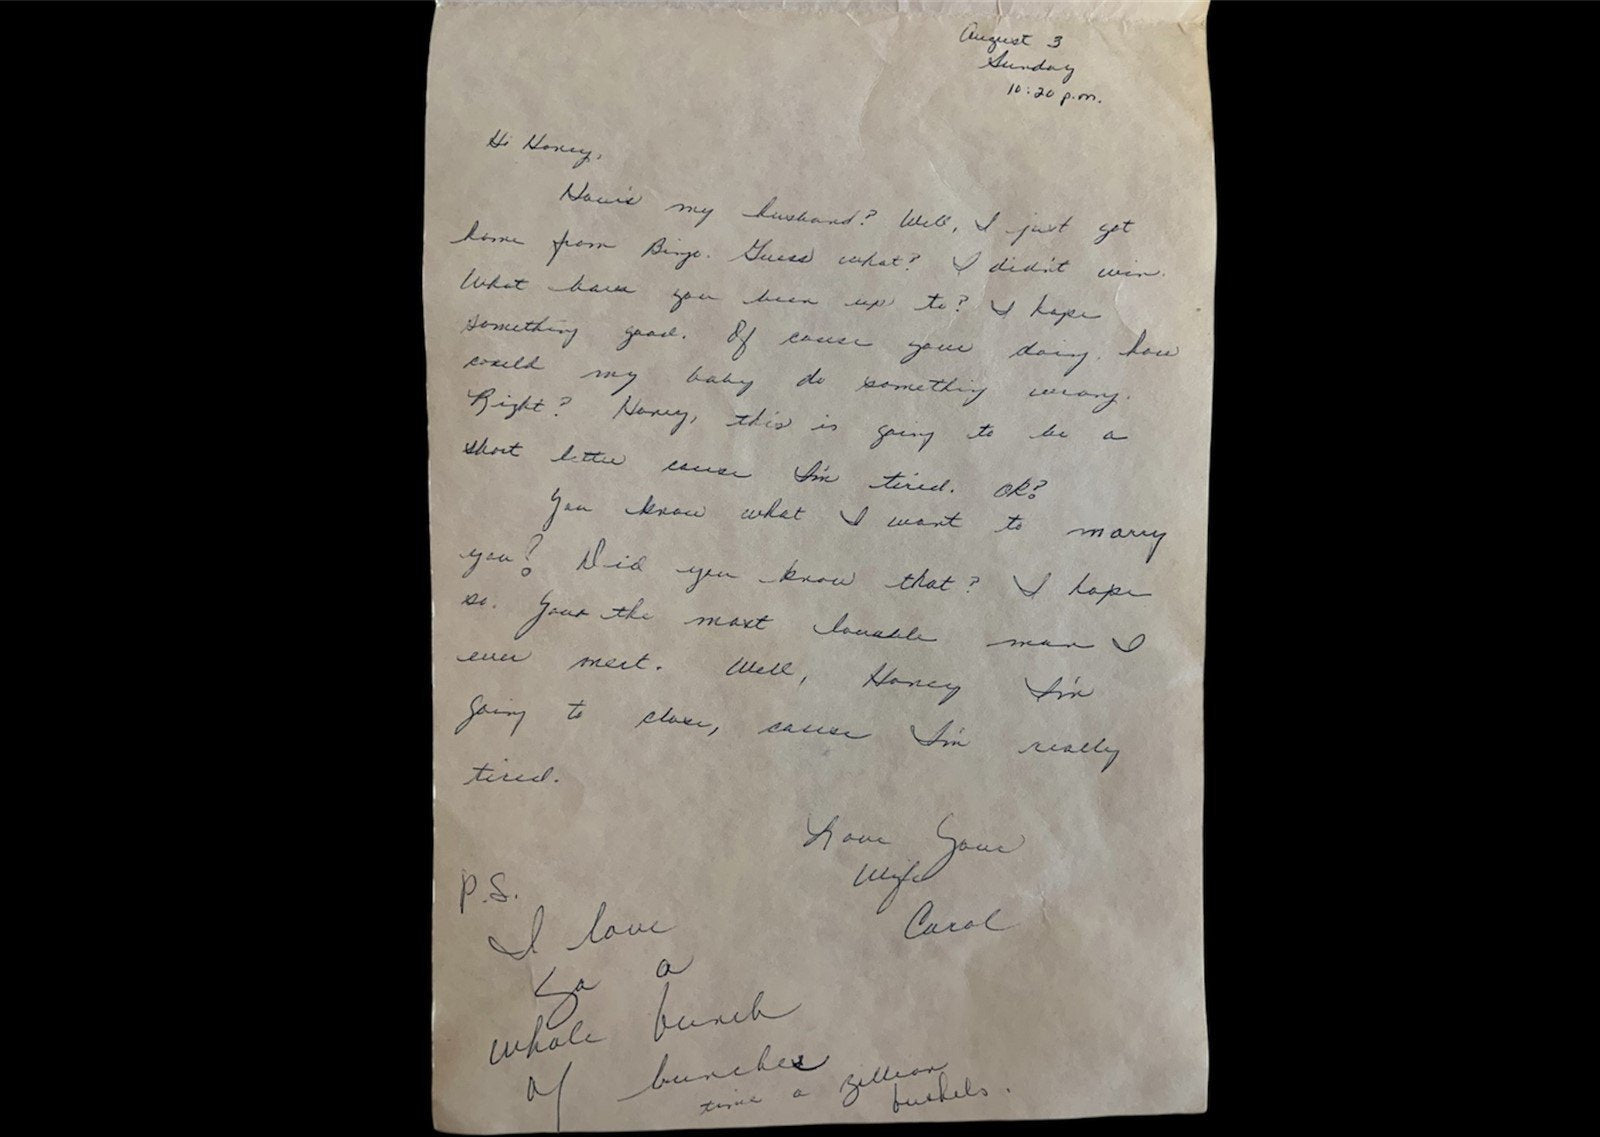 August 3
Sunday
10:20 p.m.
Hi Honey,
How's my husband? Well, I just got
home from Bingo. Guess what? I didn't win.
What have you been up to? I hope
something good. Of cause your doing, how
could my baby do something wrong.
Right? Honey, this is going to be a
short letter cause I'm tired. OK?
You know what I want to marry
you? Did you know that? I hope
so. Your the most lovable man I
ever meet. Well, Honey I'm
going to close, cause I'm really
tired.
Love Your
Wife
Carol
P.S.
I love
Ya a
whole bunch
of bunches
time a zillion
bushels.